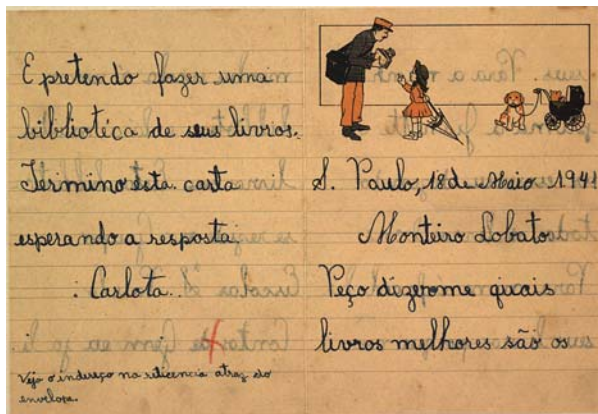 E pretendo fazer uma
bibliotéca de seus livros.
Termino esta carta
esperando a resposta
Carlota..
Veja o indereço na reticencia atraz do
envelope.
S. Paulo, 18 de Maio 1941
Monteiro Lobato
Peço dizerome quais
livros melhores são os